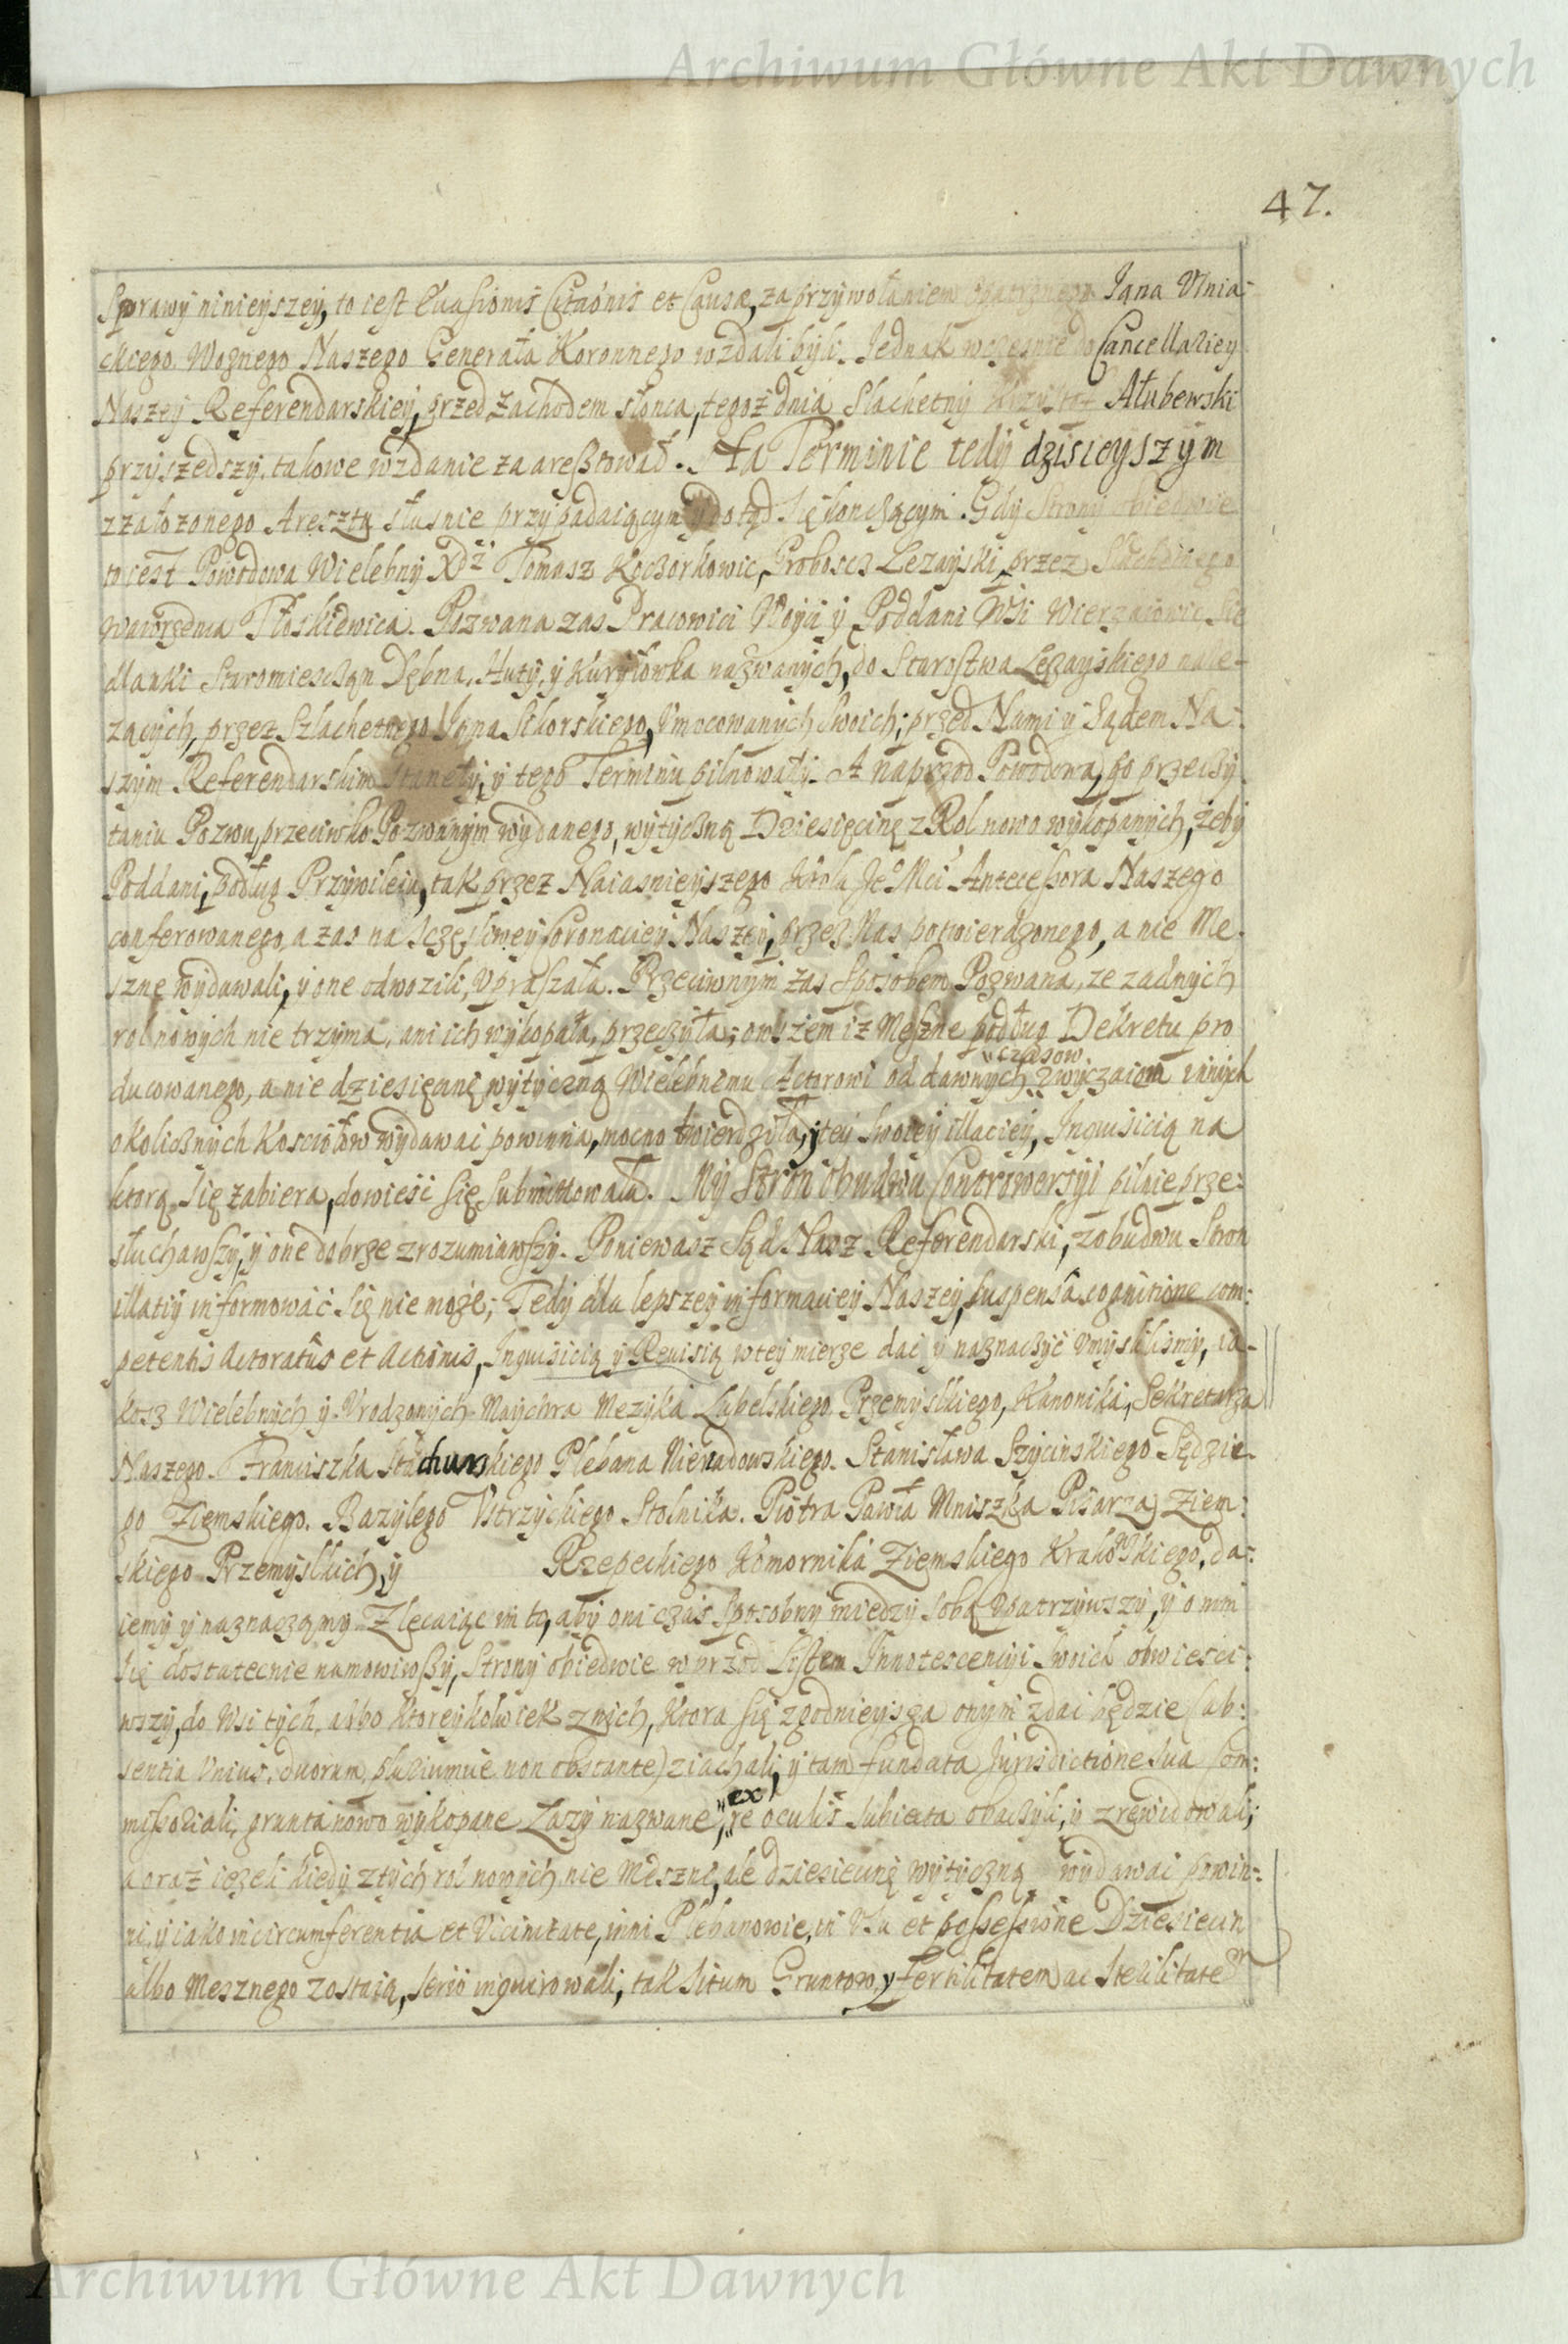 Archiwum Główne Akt Dawnych
47.
Sprawy ninieyszey, to iest Euasionis Citaõnis et Causæ, za przywołaniem Opatrznego Jana Vnia-
ckiego Woznego Naszego Generała Koronnego wzdali byli. Jednak wczesnie do Cancellariey
Naszey Referendarskiey, przed zachodem słonca, tegoż dnia Slachetny Krzysztof Ałubewski
przyszedszy, takowe wzdanie zaaresztował. Na Terminie tedy dzisieyszym
z załozonego Aresztu słusnie przypadaiącym y do tąd się konczącym. Gdy Strony obiedwie
to iest Powodowa Wielebny Xdz Tomasz Koczorkowic, Proboscz Lezayski, przez Slachetnego
Wawrzenca Płoskiewica. Pozwana zas Pracowici Woyci y Poddani Wsi Wierzawic Sie
dlanki Staromiesczan Dębna, Huty, y Kuryłowka nazwanych, do Starostwa Lezayskiego nale-
zących, przez Szlachetnego Jana Sikorskiego, Vmocowanych Swoich; przed Nami y Sądem Na-
szym Referendarskim stanęły, y tego Terminu pilnowały. A naprzod Powodowa, po przeczy
taniu Pozwu, przeciwko Pozwanym wydanego, wytyczną Dziesięcinę z Rol nowo wykopanych, żeby
Poddani, podług Przywileiu, tak przez Naiasnieyszego Krola Je° Mci Antecessora Naszego
conferowanego, a zas na sczęsliwey Coronaciey Naszey, przez Nas potwierdzonego, a nie Me-
szne wydawali, y one odwozili, Vpraszała. Przeciwnym zas sposobem Pozwana, ze zadnych
rol nowych nie trzyma, ani ich wykopała, przeczyła; owszem iz Meszne podług Dekretu pro
czasow
ducowanego, a nie dziesięcinę wytyczną Wielebnemu Actorowi od dawnych zwyczaiem innych
okolicznych Kosciołow wydawac powinna, mocno twierdziła, y tey swoiey illaciey, Inquisicią na
ktorą się zabiera, dowiesc się submittowała. My Stron obudwu Controwersyi pilnie prze-
słuchawszy, y one dobrze zrozumiawszy. Poniewasz Sąd Nasz Referendarski, z obudwu Stron
illatiy informowac się nie może; Tedy dla lepszey informaciey Naszey, suspensa cognitione com-
petentis Actoratûs et Actionis, Inquisicią y Reuisią w tey mierze dac y naznaczyc Vmyslilismy, ia-
kosz Wielebnych y Vrodzonych Maychra Mezyka Lubelskiego Przemyslkiego, Kanonika, Sekretarza
Naszego. Franciszka Stachurskiego Plebana Nienadowskiego. Stanisława Szycinskiego Sędzie-
go Ziemskiego. Bazylego Vstrzyckiego Stolnika. Piotra Pawła Mniszka Pisarza Ziem-
skiego Przemyslkich, y Rzepeckiego Komornika Ziemskiego Krakowskiego, da-
iemy y naznaczamy. Zlecaiąc im to, aby oni czas sposobny miedzy sobą vpatrzywszy, y o nim
się dostatecnie namowiwszy, Strony obiedwie wprzod Listem Innotescencyi swoich obwiesci-
wszy, do Wsi tych, albo ktoreykolwiek z nich, ktora się zgodnieysza onym zdac będzie (ab-
sentia Vnius, duorum, pluriumue non obstante) ziachali, y tam fundata Jurisdictione sua Com-
missoriali, grunta nowo wykopane Łazy nazwane, ex re oculis subiecta obaczyli, y zrewidowali,
a oraz iezeli kiedy z tych rol nowych nie Meszne, ale dziesiecinę wytyczną wydawac powin-
ni, y iako in circumferentia et Vicinitate, inni Plebanowie, in Vsu et possessione Dziesiecin
albo Mesznego zostaią, serio inquirowali, tak situm Gruntow, y fertilitatem ac sterilitatem
Archiwum Główne Akt Dawnych